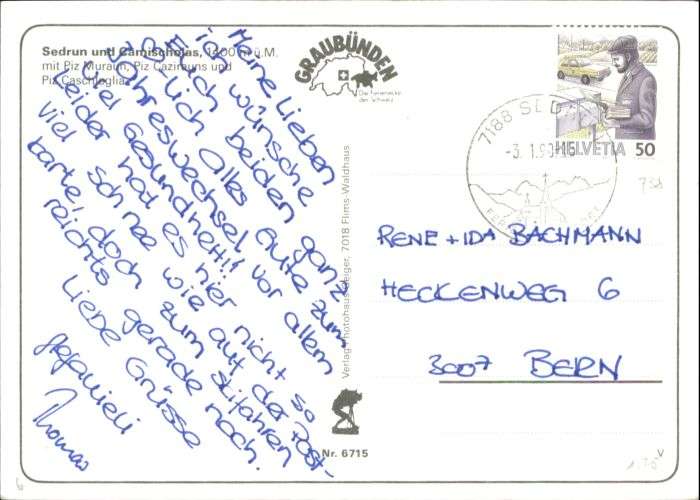 Sedrun und Camischolas, 1400 m ü.M.
mit Piz Muraun, Piz Cazirauns und
Piz Caschleglia
GRAUBÜNDEN
Die Ferienecke
der Schweiz
7188 SEDRUN
-3. 1.90-16
HELVETIA 50
Meine Lieben
ich wünsche
Euch beiden ganz
herzlich alles Gute zum
Jahreswechsel, vor allem
viel Gesundheit!!
Leider hat es hier nicht so
viel Schnee wie auf der Post-
karte, doch zum Skifahren
reichts gerade noch.
Liebe Grüsse
Thomas
RENE + IDA BACHMANN
HECKENWEG 6
3007 BERN
Verlag Photohaus Geiger, 7018 Flims-Waldhaus
Nr. 6715